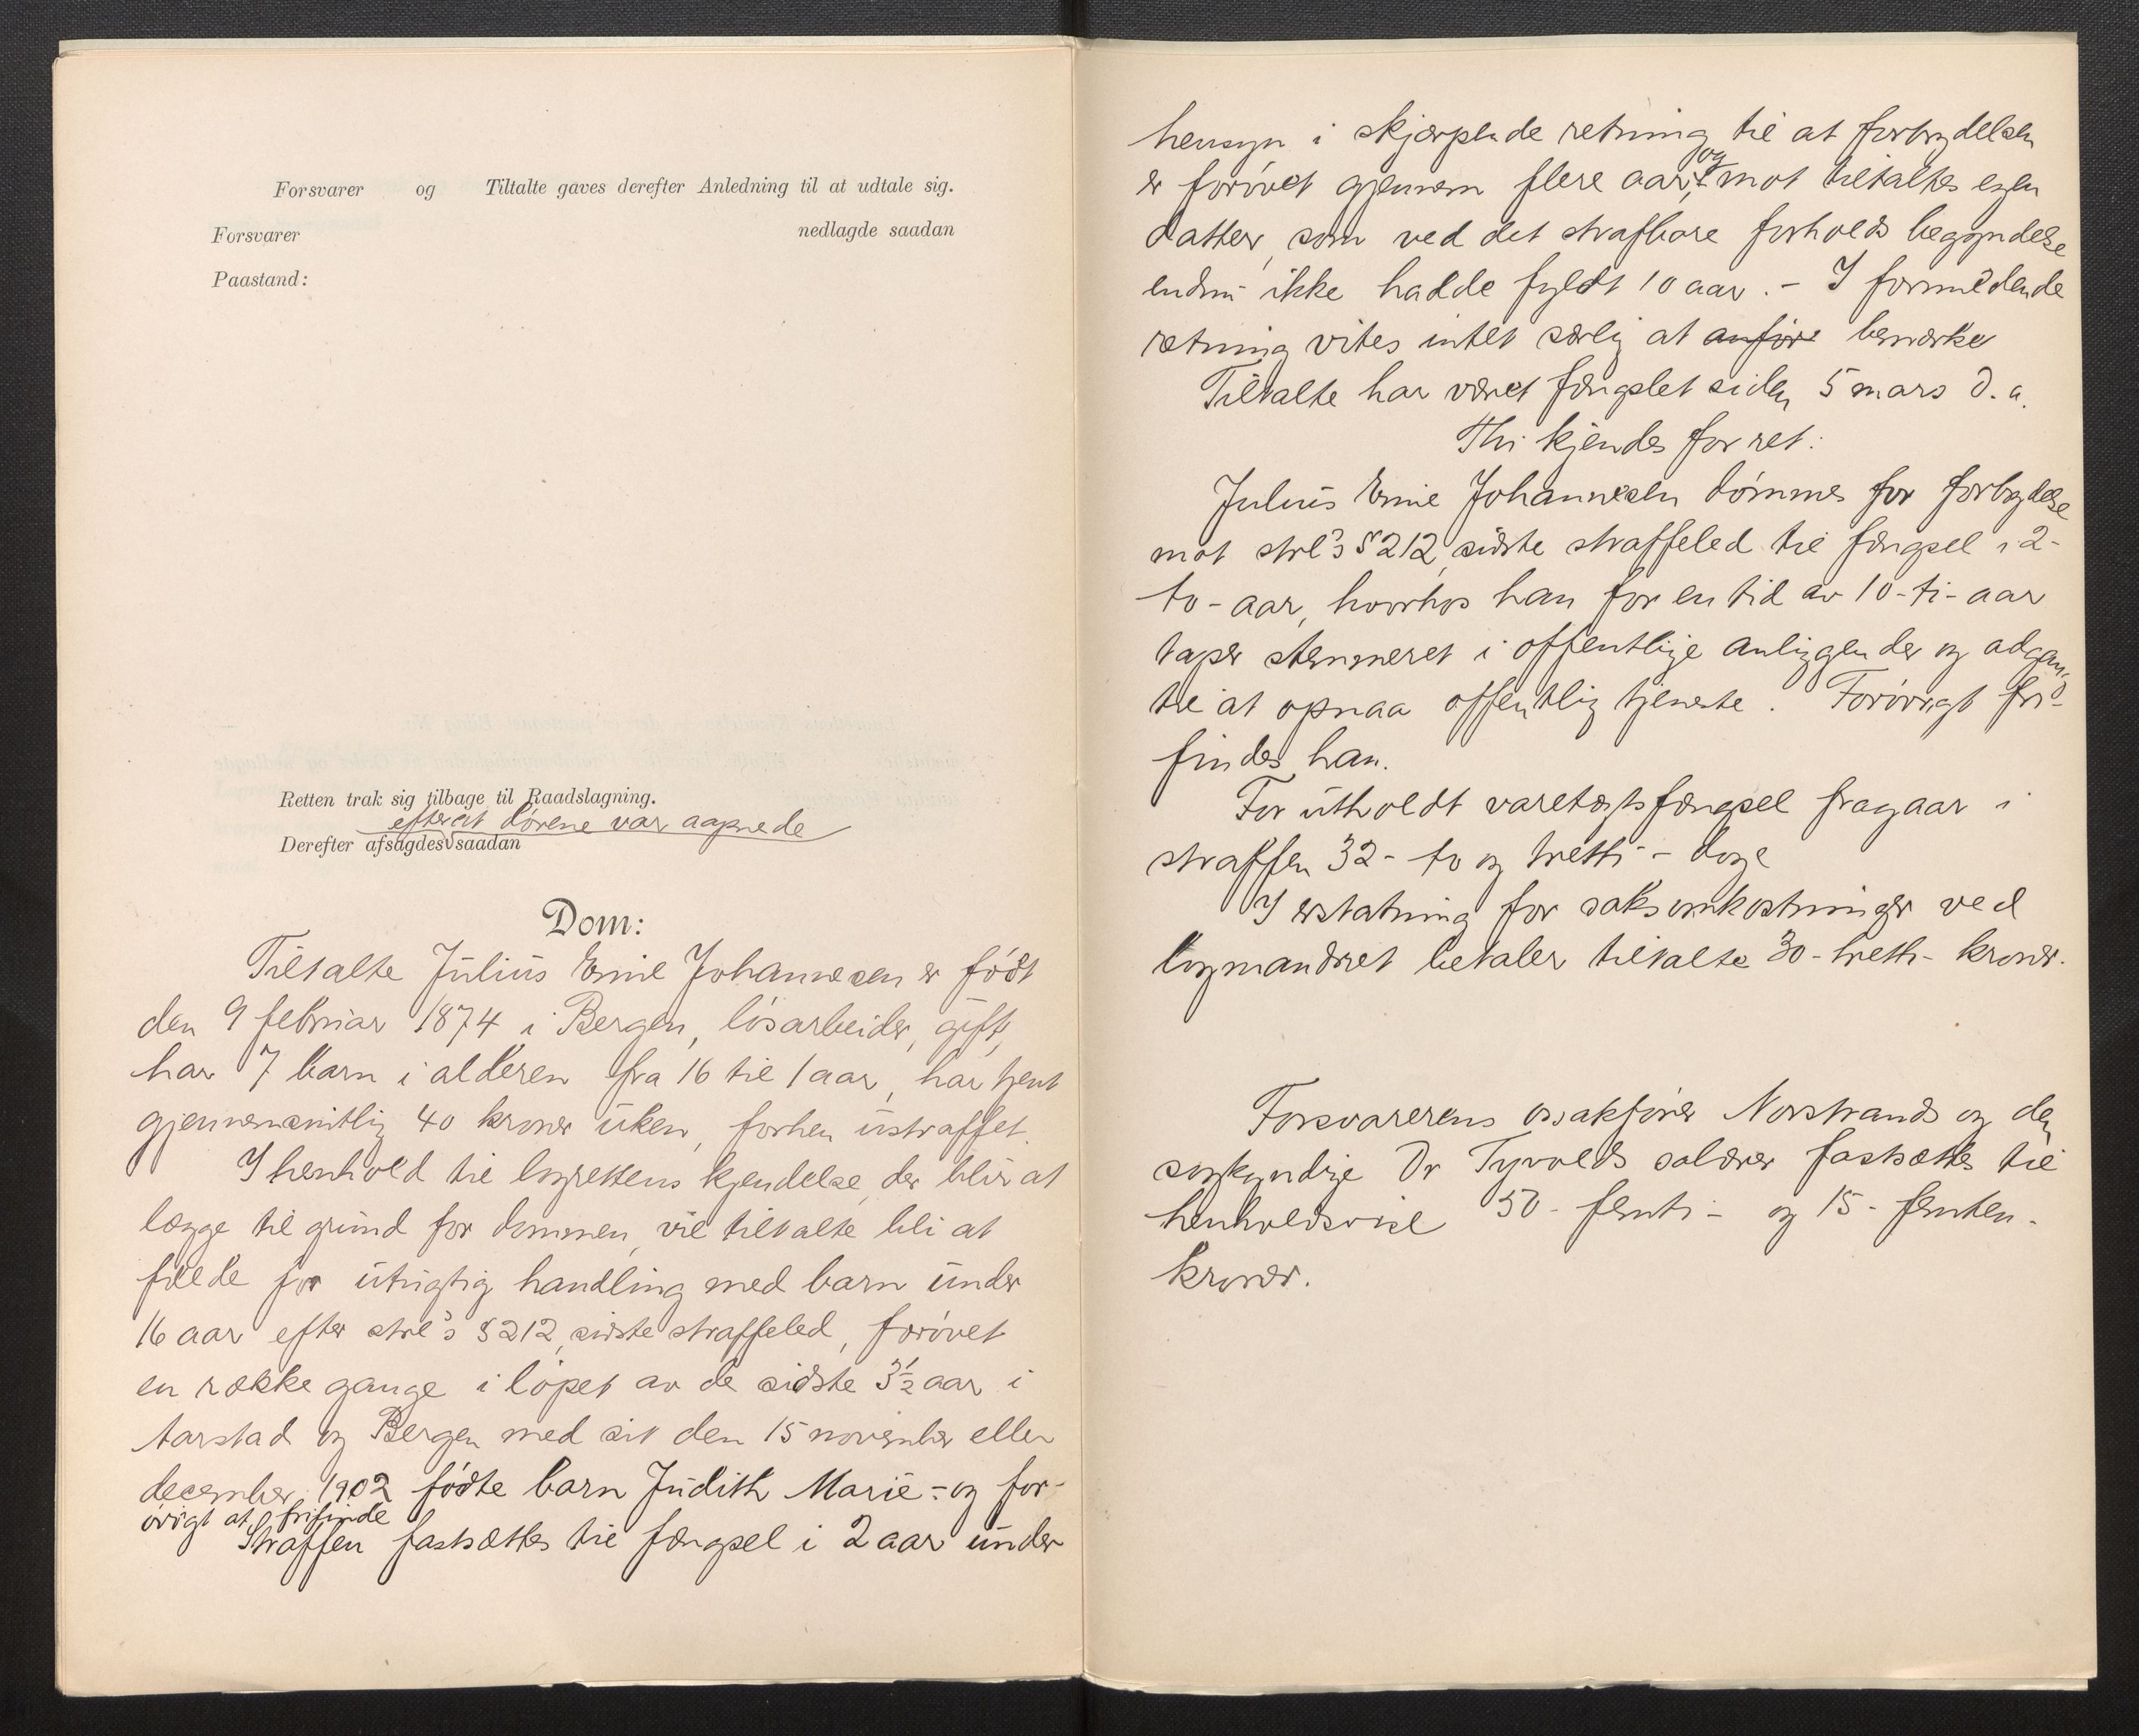 Forsvarer og Tiltalte gaves derefter Anledning til at udtale sig.
Forsvarer nedlagde saadan
Paastand:
Retten trak sig tilbage til Raadslagning.
efterat dørene var aapnede
Derefter afsagdes saadan
Dom:
Tiltalte Julius Emil Johannesen er født
den 9 februar 1874 i Bergen, løsarbeider, gift,
har 7 barn i alderen fra 16 til 1 aar, har tjent
gjennemsnitlig 40 kroner uken, forhen ustraffet.
I henhold til lagrettens kjendelse, der blir at
lægge til grund for dommen, vil tiltalte bli at
fælde for utugtig handling med barn under
16 aar efter strl's § 212, sidste straffeled, forøvet
en række gange i løpet av de sidste 3½ aar i
Aarstad og Bergen med sit den 15 november eller
december 1902 fødte barn Judith Marie - og for-
øvrigt at frifinde
Straffen fastsættes til fængsel i 2 aar under
hensyn i skjærpende retning til at forbrydelsen
er forøvet gjennem flere aar, og mot tiltaltes egen
datter, som ved det strafbare forholds begyndelse
endnu ikke hadde fyldt 10 aar. - I formildende
retning vites intet særlig at anføre bemerke
Tiltalte har været fængslet siden 5 mars d. a.
Thi kjendes for ret:
Julius Emil Johannesen dømmes for forbrydelse
mot strl's § 212, sidste straffeled til fængsel i 2-
to- aar, hvorhos han for en tid av 10-ti- aar
taper stemmeret i offentlige anliggender og adgang
til at opnaa offentlig tjeneste. Forøvrigt fri-
findes han.
For utholdt varetægtsfængsel fragaar i
straffen 32- to og tretti - dage
I erstatning for saksomkostninger ved
lagmandsret betaler tiltalte 30-tretti- kroner.
Forsvarerens o.r.sakfører Norstrands og den
sagkyndige Dr Tyvolds salærer fastsættes til
henholdsvise 50- femti - og 15- femten-
kroner.